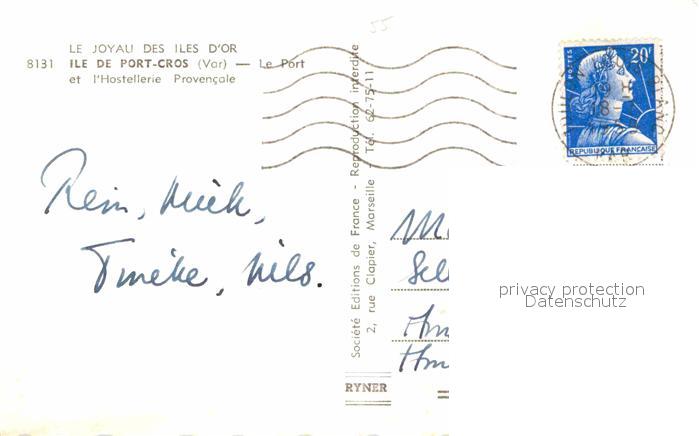 55
LE JOYAU DES ILES D'OR
8131 ILE DE PORT-CROS (Var) — Le Port
et l'Hostellerie Provençale
POSTES 20F
18
REPUBLIQUE FRANÇAISE
Société Editions de France - Reproduction interdite
2, rue Clapier, Marseille - Tél. 62-75-11
Rein, Miek,
Tineke, Nils.
privacy protection
Datenschutz
RYNER